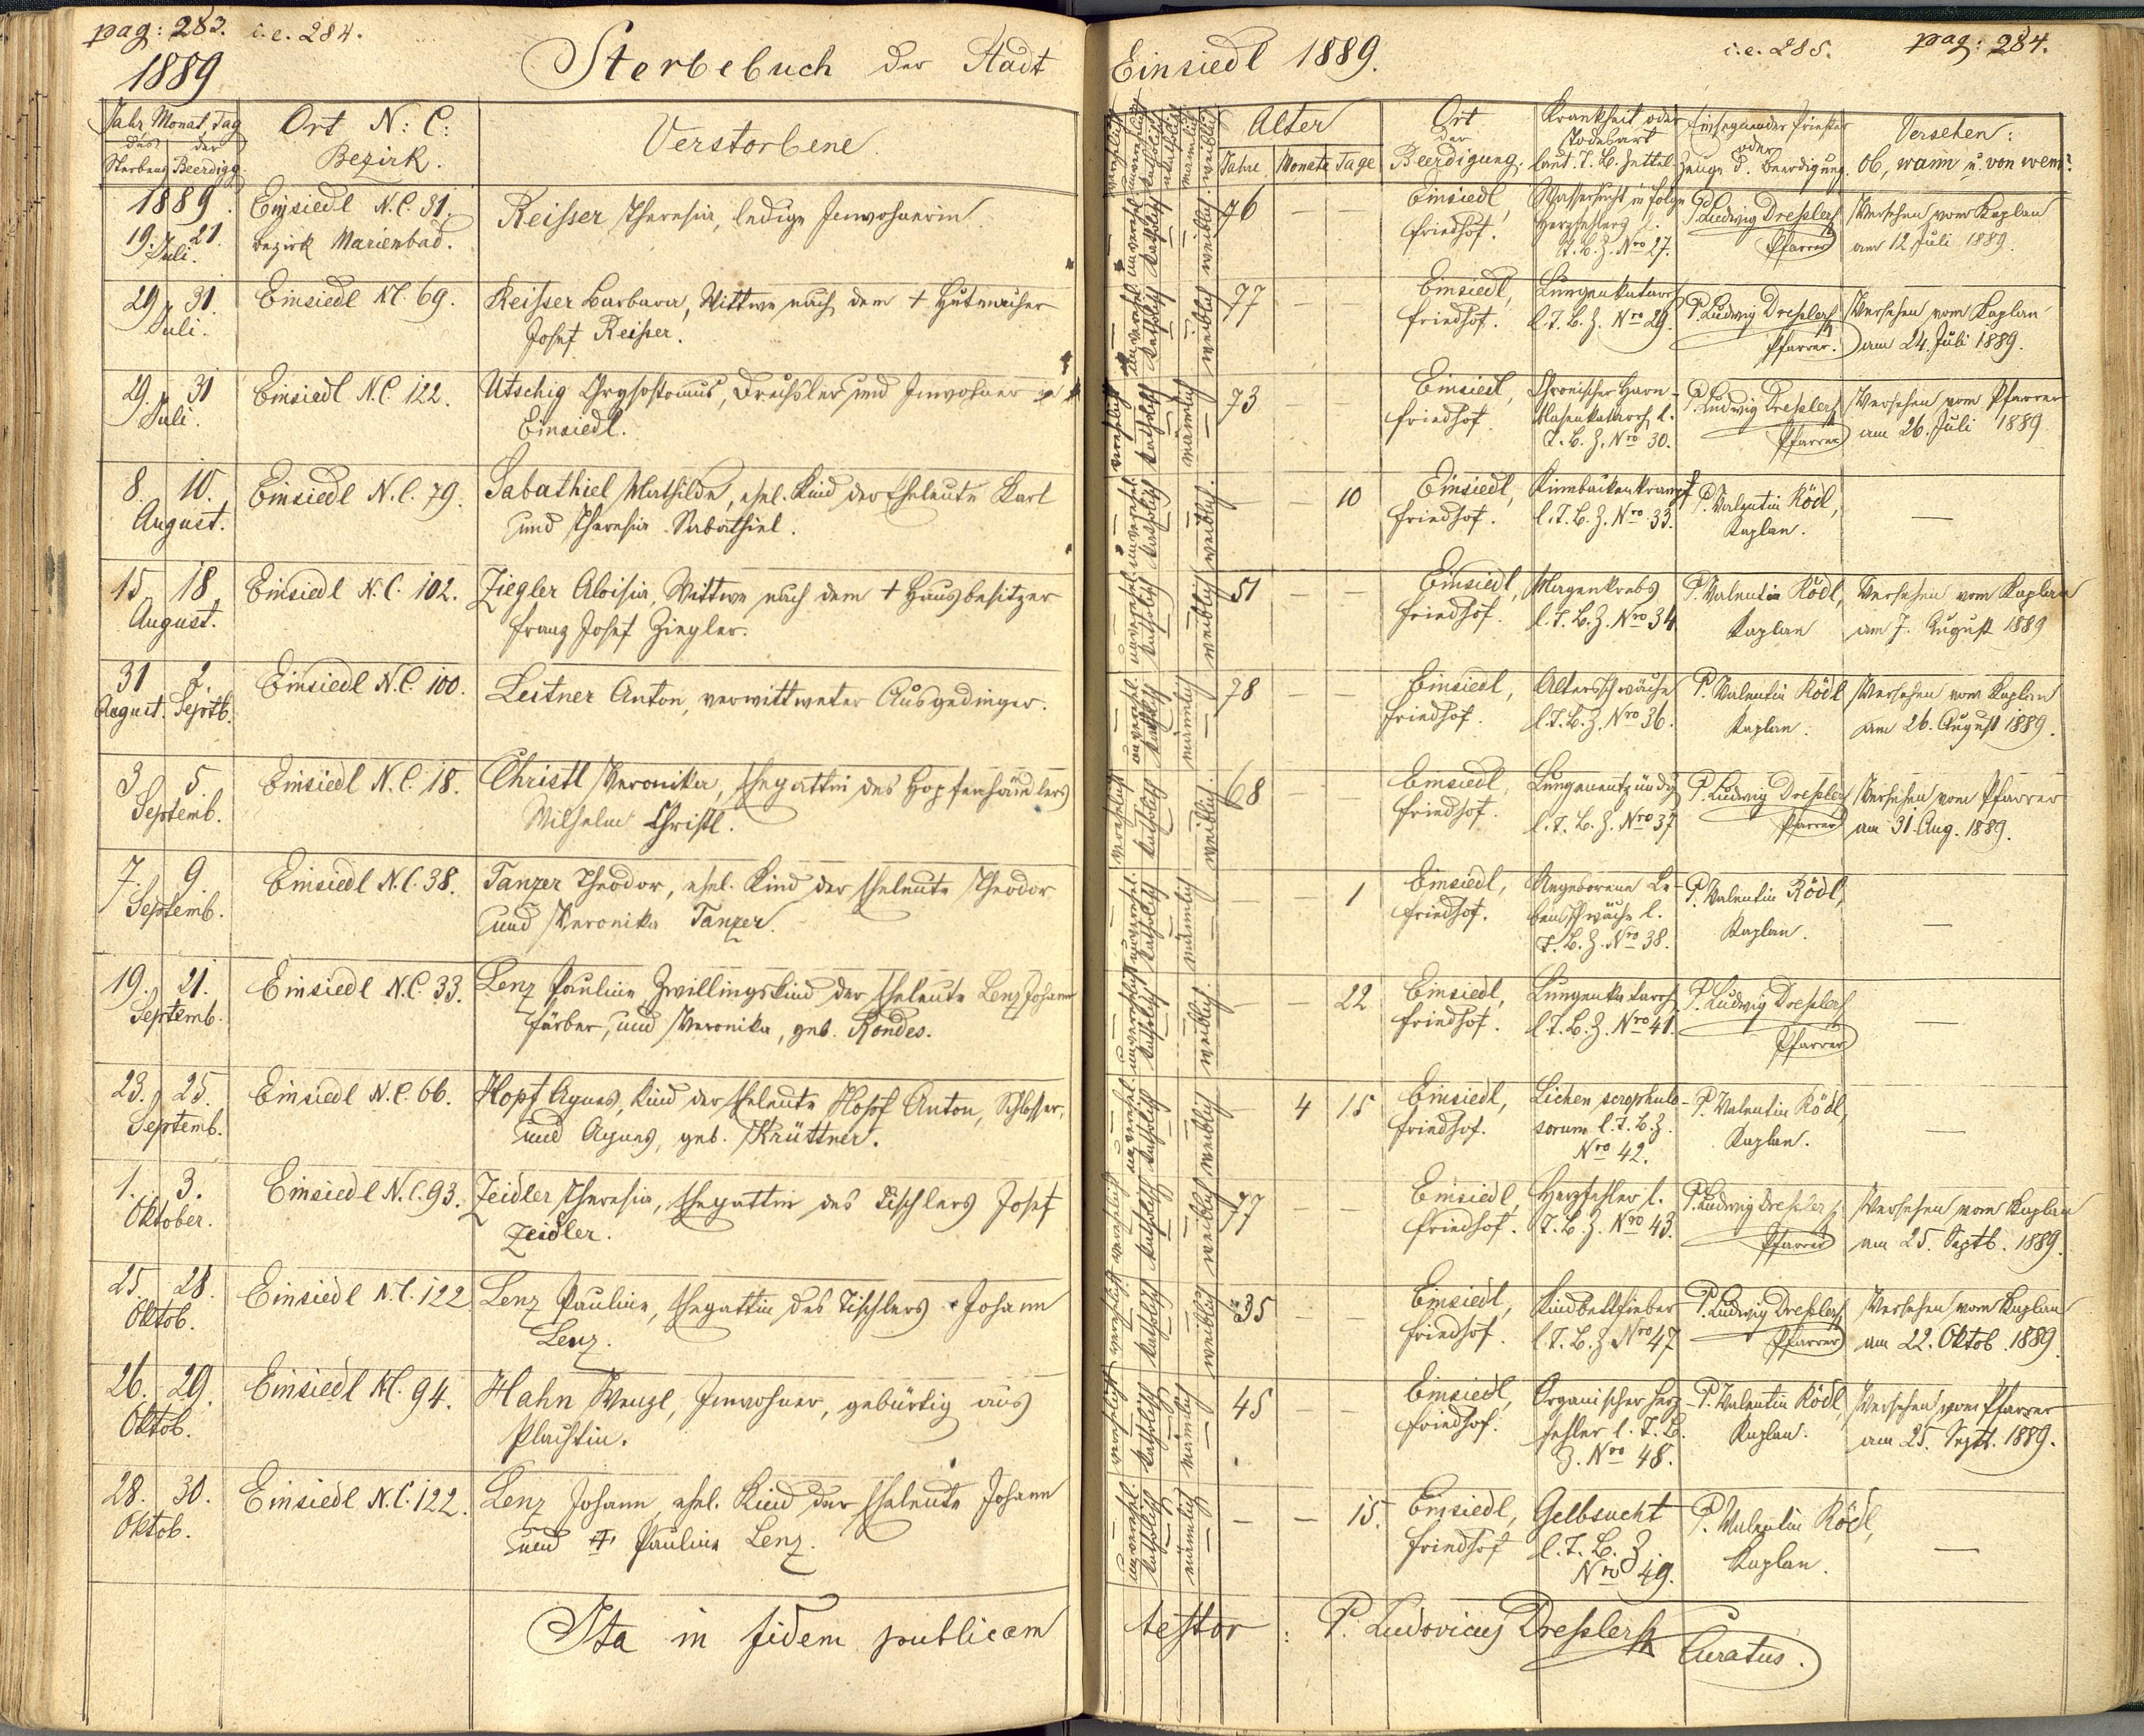 pag: 283. i.e. 284.
1889
Sterbebuch der Stadt
Jahr, Monat, Tag
des der
Sterbens Beerdigg.
Ort N: C:
Bezirk.
Verstorbene.
1889.
19. 21.
Juli.
Einsiedl N.C. 31.
Bezirk Marienbad.
Reisser Theresia, ledige Inwohnerin.
29. 31.
Juli.
Einsiedl N.C. 69.
Reisser Barbara, Wittwe nach dem + Hutmacher
Josef Reisser.
29. 31
Juli.
Einsiedl N.C. 122.
Utschig Chrysostomus, Drechsler und Inwohner
Einsiedl.
8. 10.
August.
Einsiedl N.C. 79.
Sabathiel Mathilde, ehel. Kind der Eheleute Karl
und Theresia Sabathiel.
15. 18
August.
Einsiedl N.C. 102.
Ziegler Aloisia, Wittwe nach dem + Hausbesitzer
Franz Josef Ziegler.
31 2.
August. Septb.
Einsiedl N.C. 100.
Leitner Anton, verwittweter Ausgedinger.
3. 5.
Septemb.
Einsiedl N.C. 18.
Christl Veronika, Ehegattin des Hopfenhändlers
Wilhelm Christl.
7. 9.
Septemb.
Einsiedl N.C. 38.
Tanzer Theodor, ehel. Kind der Eheleute Theodor
und Veronika Tanzer.
19. 21.
Septemb.
Einsiedl N.C. 33.
Lenz Pauline, Zwillingskind der Eheleute Lenz Johann
Färber, und Veronika, geb. Rondes.
23. 25.
Septemb.
Einsiedl N.C. 66.
Hopf Agnes, Kind der Eheleute Hopf Anton, Schlosser,
und Agnes, geb. Krüttner.
1. 3.
Oktober.
Einsiedl N.C. 93.
Zeidler Theresia, Ehegattin des Tischlers Josef
Zeidler.
25. 28.
Oktob.
Einsiedl N.C. 122
Lenz Pauline, Ehegattin des Tischlers Johann
Lenz.
26. 29.
Oktob.
Einsiedl N.C. 94.
Hahn Wenzl, Inwohner, gebürtig aus
Plachtin.
28. 30.
Oktob.
Einsiedl N.C. 122.
Lenz Johann, ehel. Kind der Eheleute Johann
und + Pauline Lenz.
Ita in fidem publicam
Einsiedl 1889.
i.e. 285. pag: 284.
verehelicht
unverehelicht
katholisch
akatholisch
männlich
weiblich
Alter
Jahre Monate Tage
Ort
der
Beerdigung.
Krankheit oder
Todesart
laut T. B. Zettel
Einsegnender Priester
oder
Zeuge d. Beerdigung.
Versehen:
ob, wann u. von wem?
unverehel. katholisch weiblich.
76 — —
Einsiedl,
Friedhof.
Wassersucht in Folge
Herzfehlers l.
T. B. Z. Nro 27.
P. Ludwig Dressler
Pfarrer
Versehen vom Kaplan
am 12. Juli 1889.
unverehel. katholisch weiblich
77 —
Einsiedl,
Friedhof.
Lungenkatarrh
l. T. B. Z. Nro 29.
P. Ludwig Dressler
Pfarrer.
Versehen vom Kaplan
am 24. Juli 1889.
verehelicht katholisch männlich
73 — —
Einsiedl,
Friedhof.
Chronischer Harn-
blasenkatarrh l.
T. B. Z. Nro 30.
P. Ludwig Dressler
Pfarrer
Versehen vom Pfarrer
am 26. Juli 1889
unverehel. katholisch weiblich.
— — 10
Einsiedl,
Friedhof.
Kinnbackenkrampf
l. T. B. Z. Nro 33.
P. Valentin Rödl,
Kaplan.
—
unverehel. katholisch weiblich
51 — —
Einsiedl,
Friedhof.
Magenkrebs
l. T. B. Z. Nro 34
P. Valentin Rödl,
Kaplan
Versehen vom Kaplan
am 7. August 1889
unverehel. katholisch männlich
78 — —
Einsiedl,
Friedhof.
Altersschwäche
l. T. B. Z. Nro 36.
P. Valentin Rödl
Kaplan.
Versehen vom Kaplan
am 26. August 1889.
verehelicht katholisch weiblich.
68 — —
Einsiedl,
Friedhof.
Lungenentzündg
l. T. B. Z. Nro 37
P. Ludwig Dressler
Pfarrer
Versehen vom Pfarrer
am 31. Aug. 1889.
unverehel. katholisch männlich
— — 1
Einsiedl,
Friedhof.
Angeborene Le-
bensschwäche l.
T. B. Z. Nro 38.
P. Valentin Rödl,
Kaplan.
—
unverehelicht katholisch weiblich.
— — 22
Einsiedl,
Friedhof.
Lungenkatarrh
l. T. B. Z. Nro 41.
P. Ludwig Dressler
Pfarrer
—
unverehel. katholisch weiblich
— 4 15
Einsiedl,
Friedhof.
Lichen scrophulo-
sorum l. T. B. Z.
Nro 42.
P. Valentin Rödl,
Kaplan.
—
verehelicht katholisch weiblich
77 — —
Einsiedl,
Friedhof.
Herzfehler l.
T. B. Z. Nro 43.
P. Ludwig Dressler
Pfarrer
Versehen vom Kaplan
am 25. Septb. 1889.
verehelicht katholisch weiblich
35 — —
Einsiedl,
Friedhof.
Kindbettfieber
l. T. B. Z. Nro 47
P. Ludwig Dressler
Pfarrer
Versehen vom Kaplan
am 22. Oktob. 1889.
verehelicht katholisch männlich
45 — —
Einsiedl,
Friedhof.
Organischer Herz-
fehler l. T. B.
Z. Nro 48.
P. Valentin Rödl,
Kaplan.
Versehen vom Pfarrer
am 25. Sept. 1889.
unverehel. katholisch männlich
— — 15.
Einsiedl,
Friedhof
Gelbsucht
l. T. B. Z.
Nro 49.
P. Valentin Rödl,
Kaplan.
—
testor: P. Ludovicus Dressler
Curatus.